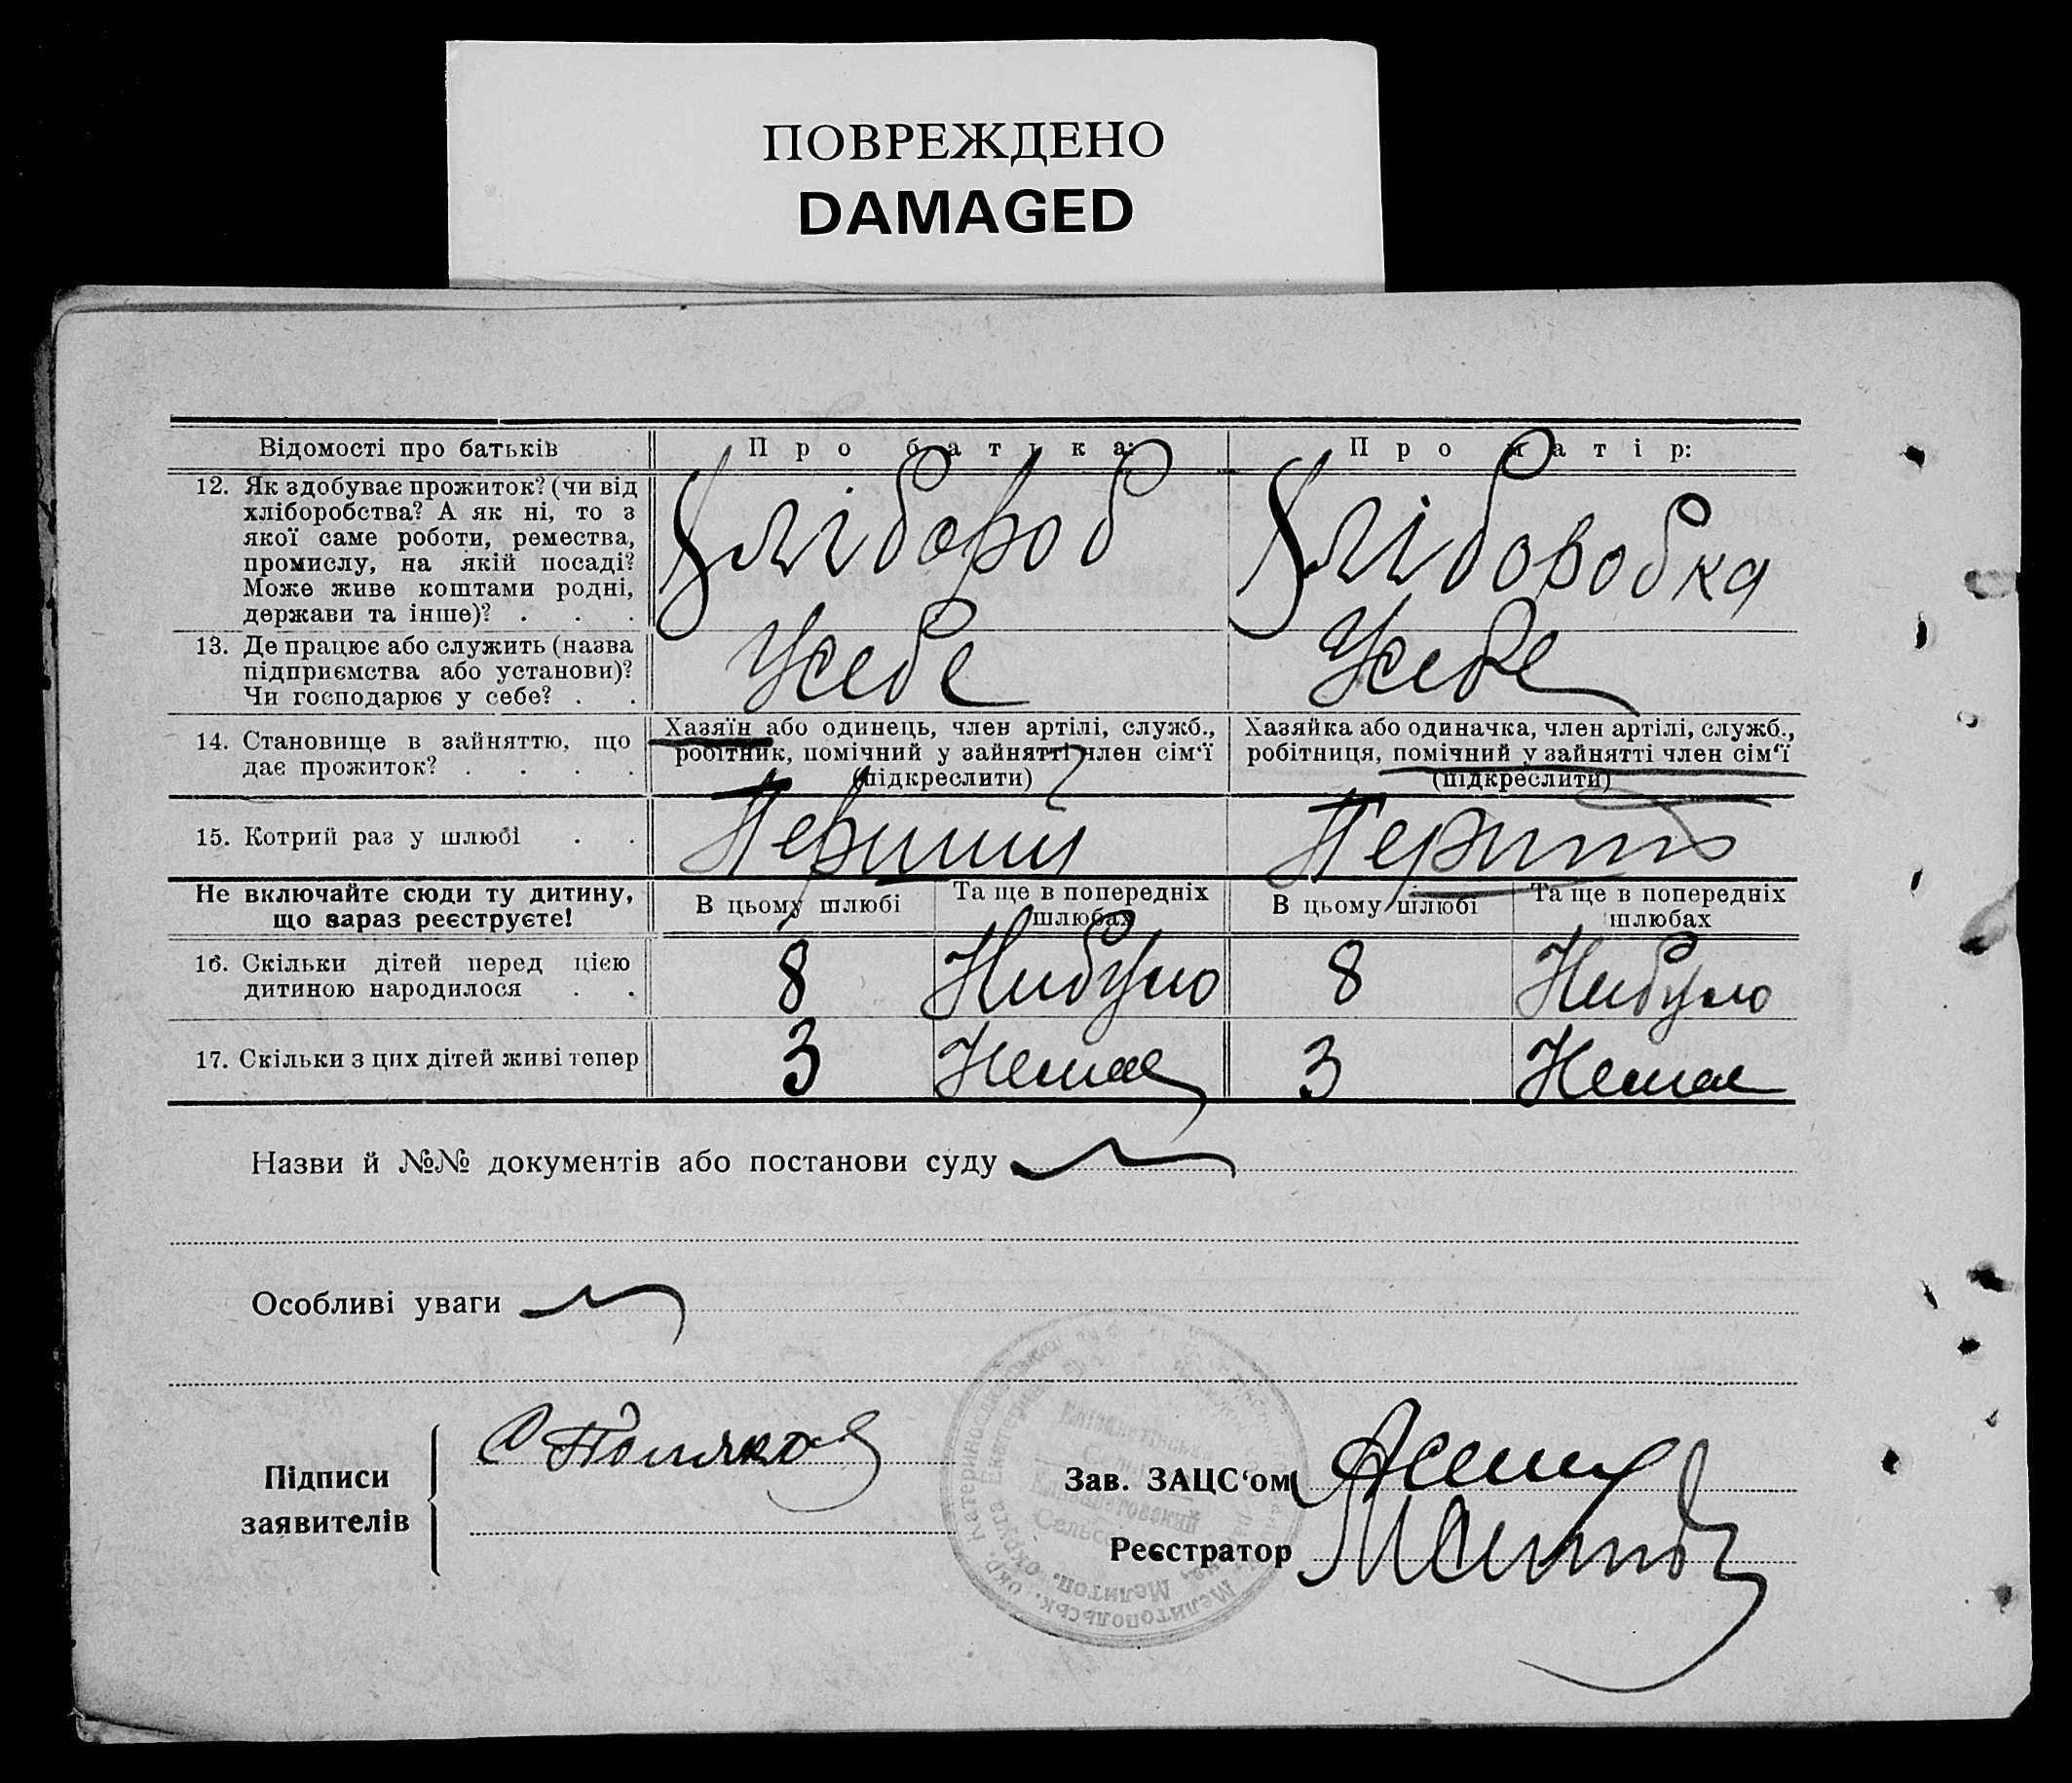 ПОВРЕЖДЕНО
DAMAGED
Відомості про батьків
Про батька:
Про матір:
12. Як здобуває прожиток? (чи від
хліборобства? А як ні, то з
якої саме роботи, ремества,
промислу, на якій посаді?
Може живе коштами родні,
держави та інше)? . . .
Хлібороб
Хліборобка
13. Де працює або служить (назва
підприємства або установи)?
Чи господарює у себе? . .
Усебе
Усебе
14. Становище в зайняттю, що
дає прожиток? . . . .
Хазяїн або одинець, член артілі, служб.,
робітник, помічний у зайнятті член сім'ї
(підкреслити)
Хазяйка або одиначка, член артілі, служб.,
робітниця, помічний у зайнятті член сім'ї
(підкреслити)
15. Котрий раз у шлюбі . .
Перший
Не включайте сюди ту дитину,
що зараз реєструєте!
В цьому шлюбі
Та ще в попередніх
шлюбах
В цьому шлюбі
Та ще в попередніх
шлюбах
16. Скільки дітей перед цією
дитиною народилося . .
8
Небуло
8
Небуло
17. Скільки з цих дітей живі тепер
3
Немае
3
Немае
Назви й №№ документів або постанови суду
Особливі уваги
Підписи
заявителів
Зав. ЗАЦС'ом
Реєстратор
Мелитопольськ. окр. Катеринослав
Мелитоп. округа
Елизаветовский